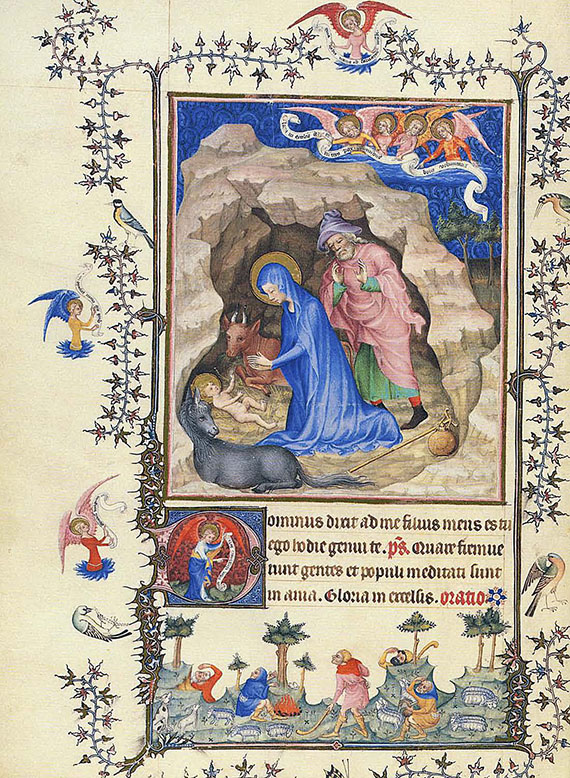 Dominus dixit ad me filius meus es tu
ego hodie genui te. ps. Quare fremue
runt gentes et populi meditati sunt
in ania. Gloria in excelsis. oratio